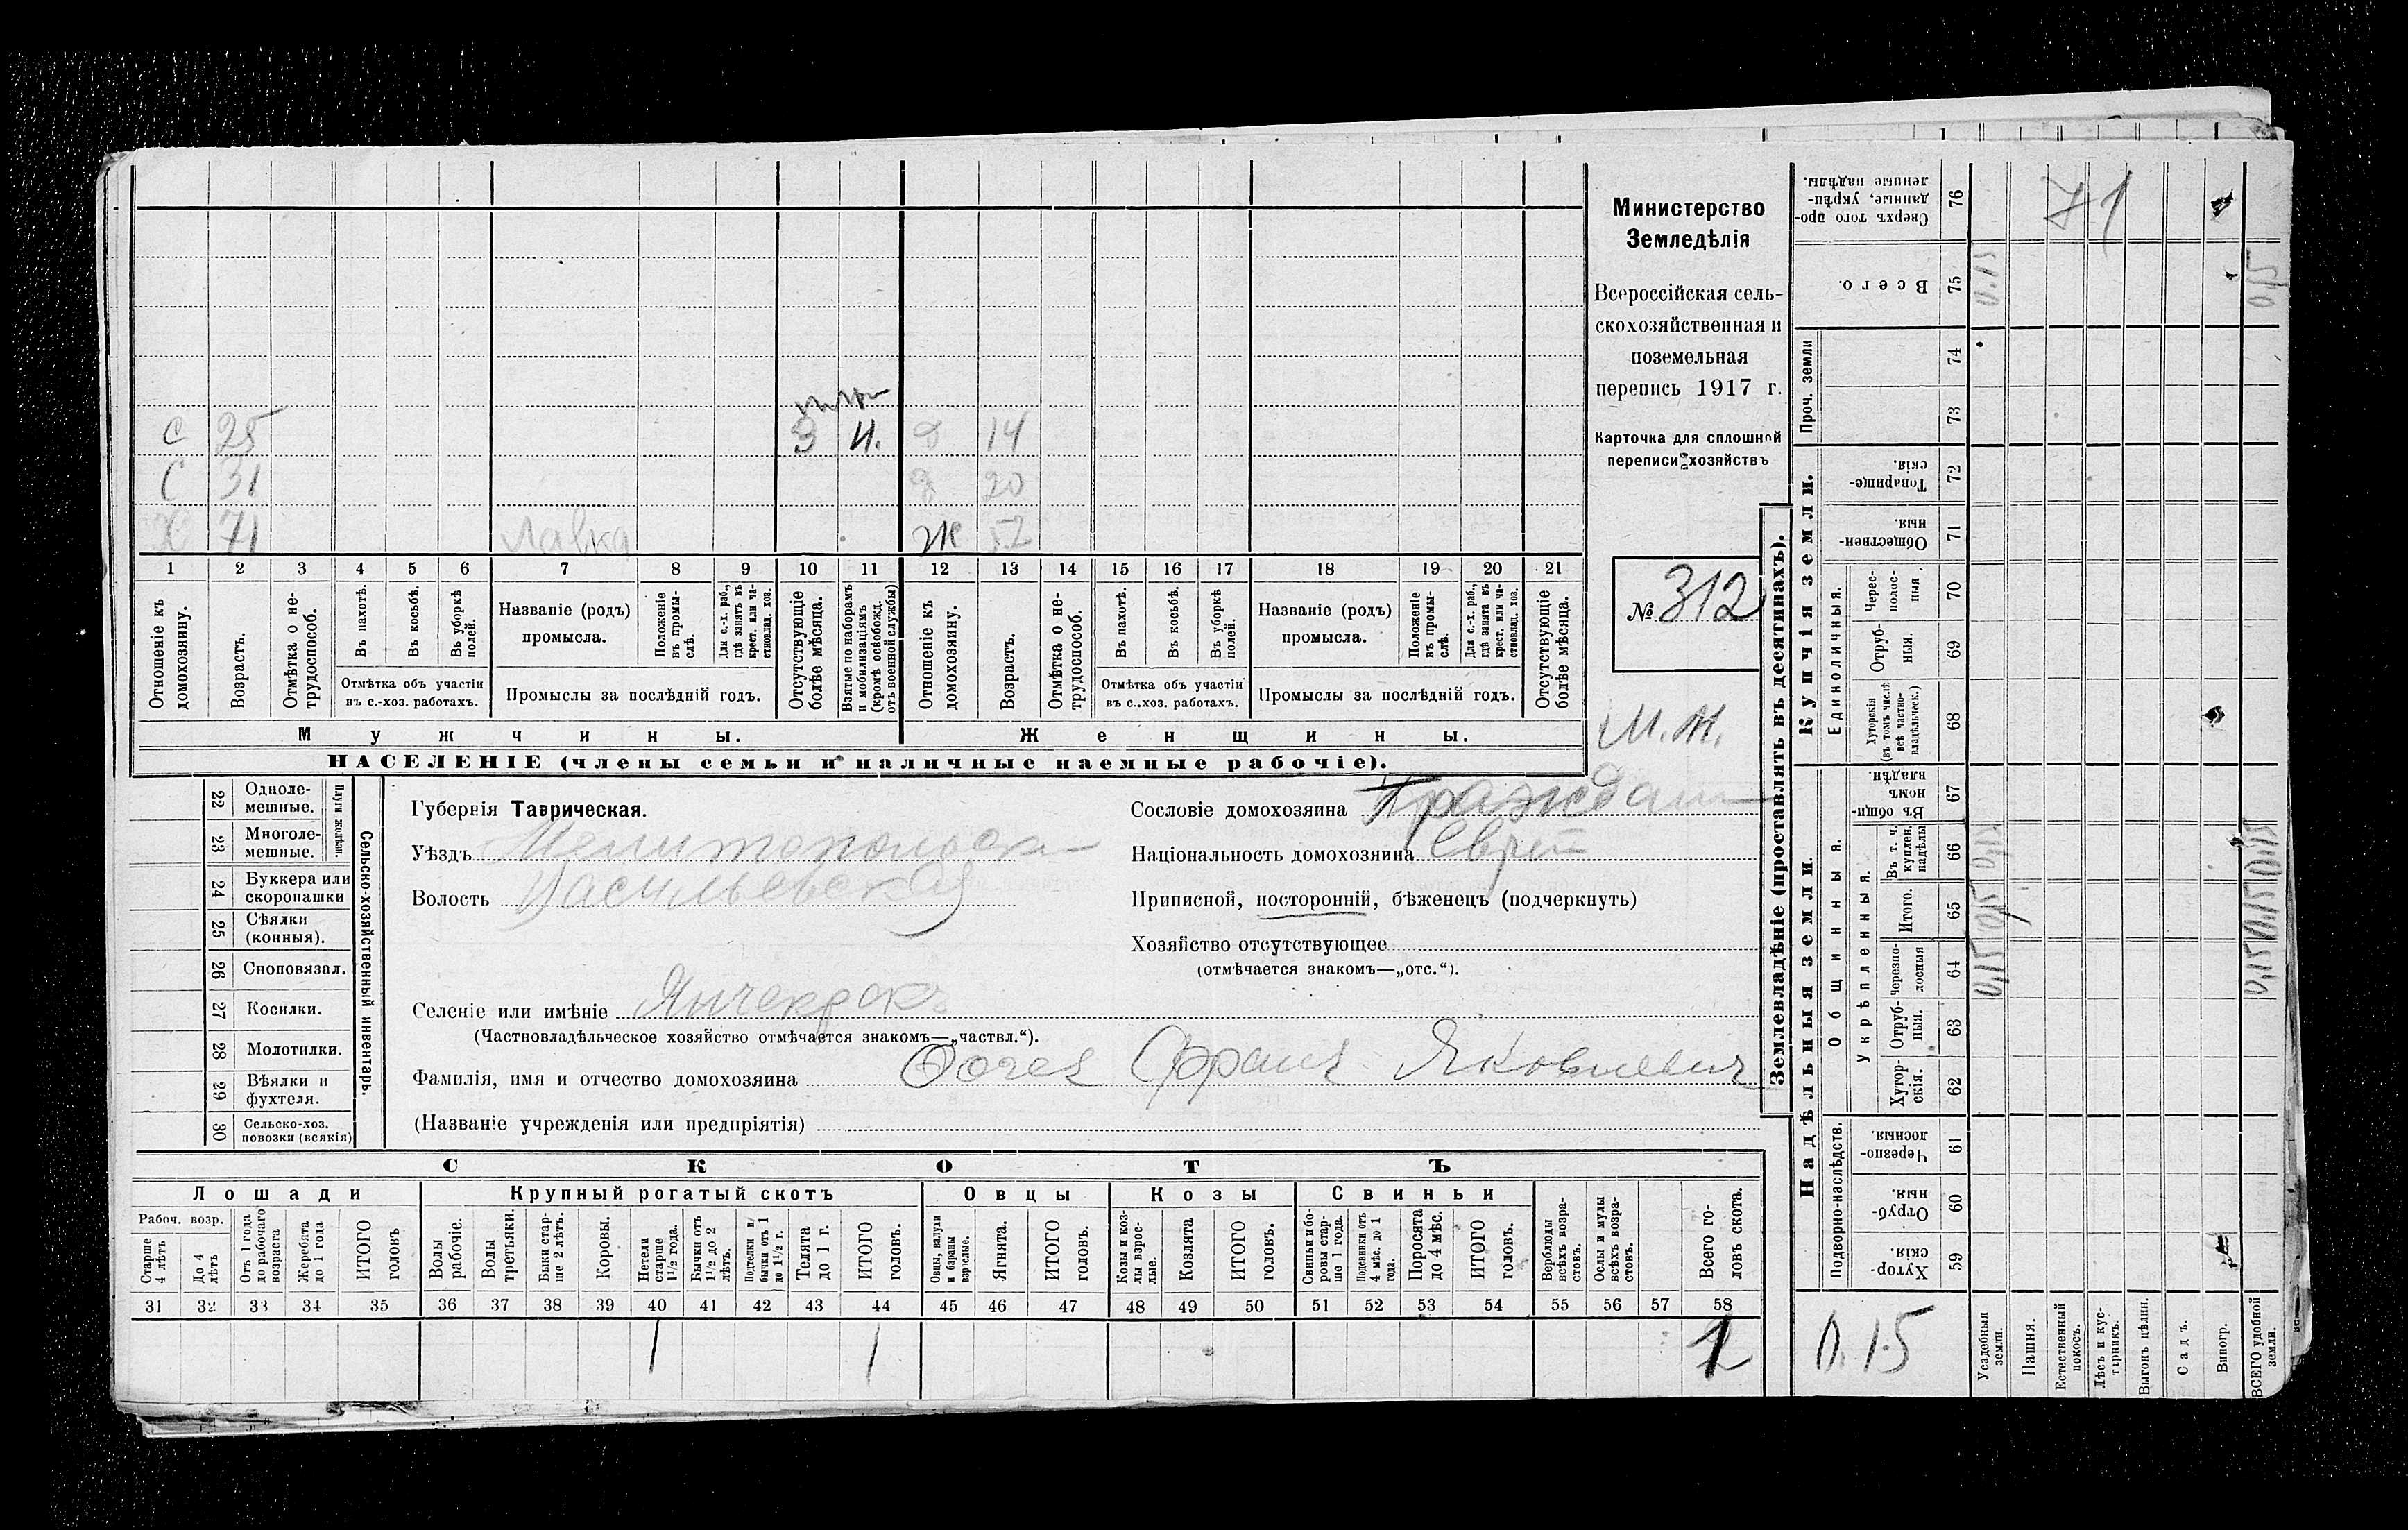 Министерство
Земледѣлія
Всероссійская сель-
скохозяйственная и
поземельная
перепись 1917 г.
Карточка для сплошной
переписи хозяйствъ
№ 312
М. И.
С 25 З И. д 14
С 31 д 20
Х 71 Лавка Ж 52
1 2 3 4 5 6 7 8 9 10 11 12 13 14 15 16 17 18 19 20 21
Отношеніе къ домохозяину.
Возрастъ.
Отмѣтка о не-трудоспособ.
Въ пахотѣ.
Въ косьбѣ.
Въ уборкѣ полей.
Отмѣтка объ участіи
въ с.-хоз. работахъ.
Названіе (родъ)
промысла.
Положеніе въ промы-слѣ.
Для с.-х. раб., гдѣ занятъ въ крест. или ча-стновлад. хоз.
Промыслы за послѣдній годъ.
Отсутствующіе болѣе мѣсяца.
Взятые по наборамъ и мобилизаціямъ (кромѣ освобожд. отъ военной службы)
Отношеніе къ домохозяину.
Возрастъ.
Отмѣтка о не-трудоспособ.
Въ пахотѣ.
Въ косьбѣ.
Въ уборкѣ полей.
Отмѣтка объ участіи
въ с.-хоз. работахъ.
Названіе (родъ)
промысла.
Положеніе въ промы-слѣ.
Для с.-х. раб., гдѣ занята въ крест. или ча-стновлад. хоз.
Промыслы за послѣдній годъ.
Отсутствующіе болѣе мѣсяца.
Мужчины. Женщины.
НАСЕЛЕНІЕ (члены семьи и наличные наемные рабочіе).
22 Одноле-мешные.
23 Многоле-мешные.
Плуги желѣзн.
24 Буккера или скоропашки
25 Сѣялки (конныя).
26 Сноповязал.
27 Косилки.
28 Молотилки.
29 Вѣялки и фухтеля.
30 Сельско-хоз. повозки (всякія)
Сельско-хозяйственный инвентарь.
Губернія Таврическая.
Уѣздъ Мелитопольск
Волость Васильевская
Селеніе или имѣніе Янчекрак
(Частновладѣльческое хозяйство отмѣчается знакомъ—„частвл.“).
Фамилія, имя и отчество домохозяина Франц Яковлевич
(Названіе учрежденія или предпріятія)
Сословіе домохозяина Граждан
Національность домохозяина Еврей
Приписной, посторонній, бѣженецъ (подчеркнуть)
Хозяйство отсутствующее
(отмѣчается знакомъ—„отс.“).
СКОТЪ
Лошади Крупный рогатый скотъ Овцы Козы Свиньи
Рабоч. возр.
Старше 4 лѣтъ
До 4 лѣтъ
Отъ 1 года до рабочаго возраста
Жеребята до 1 года
ИТОГО головъ
Волы рабочіе.
Волы третьяки.
Быки стар-ше 2 лѣтъ.
Коровы.
Нетели старше 1½ года.
Бычки отъ 1½ до 2 лѣтъ.
Подтелки и бычки отъ 1 до 1½ г.
Телята до 1 г.
ИТОГО головъ.
Овцы, валухи и бараны взрослые.
Ягнята.
ИТОГО головъ.
Козы и коз-лы взрос-лые.
Козлята
ИТОГО головъ.
Свиньи и бо-ровы стар-ше 1 года.
Подсвинки отъ 4 мѣс. до 1 года.
Поросята до 4 мѣс.
ИТОГО головъ.
Верблюды всѣхъ возра-стовъ.
Ослы и мулы всѣхъ возра-стовъ.
Всего го-ловъ скота.
31 32 33 34 35 36 37 38 39 40 41 42 43 44 45 46 47 48 49 50 51 52 53 54 55 56 57 58
1 1 1
Землевладѣніе (проставлять въ десятинахъ).
Надѣльныя земли. Купчія земли. Проч. земли
Подворно-наслѣдств.
Общинныя.
Укрѣпленныя.
Единоличныя.
Хутор-скія. 59
Отруб-ныя. 60
Черезпо-лосныя. 61
Хутор-скія. 62
Отруб-ныя. 63
Черезпо-лосныя 64
Итого. 65
Въ т. ч. куплен. надѣлы 66
Въ общи-номъ владѣн. 67
Хуторскія (въ томъ числѣ всѣ частно-владѣльческ.) 68
Отруб-ныя. 69
Черес-полос-ныя 70
Обществен-ныя. 71
Товарище-скія. 72
73
74
Всего. 75
Сверхъ того про-данные, укрѣп-ленные надѣлы. 76
71
0.15
Усадебныя земли.
Пашня.
Естественный покосъ.
Лѣсъ и кус-тарникъ.
Выгонъ цѣлин.
Садъ.
Виногр.
ВСЕГО удобной земли.
0,15 0,15 0,15 0.15
0,15 0,15 0,15 0,15